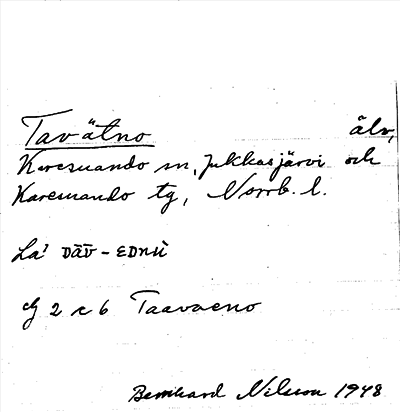 Tavätno älv,
Karesuando sn, Jukkasjärvi och
Karesuando tg, Norrb. l.
La!
2 c 6 Taavaeno
Bernhard Nilsson 1948